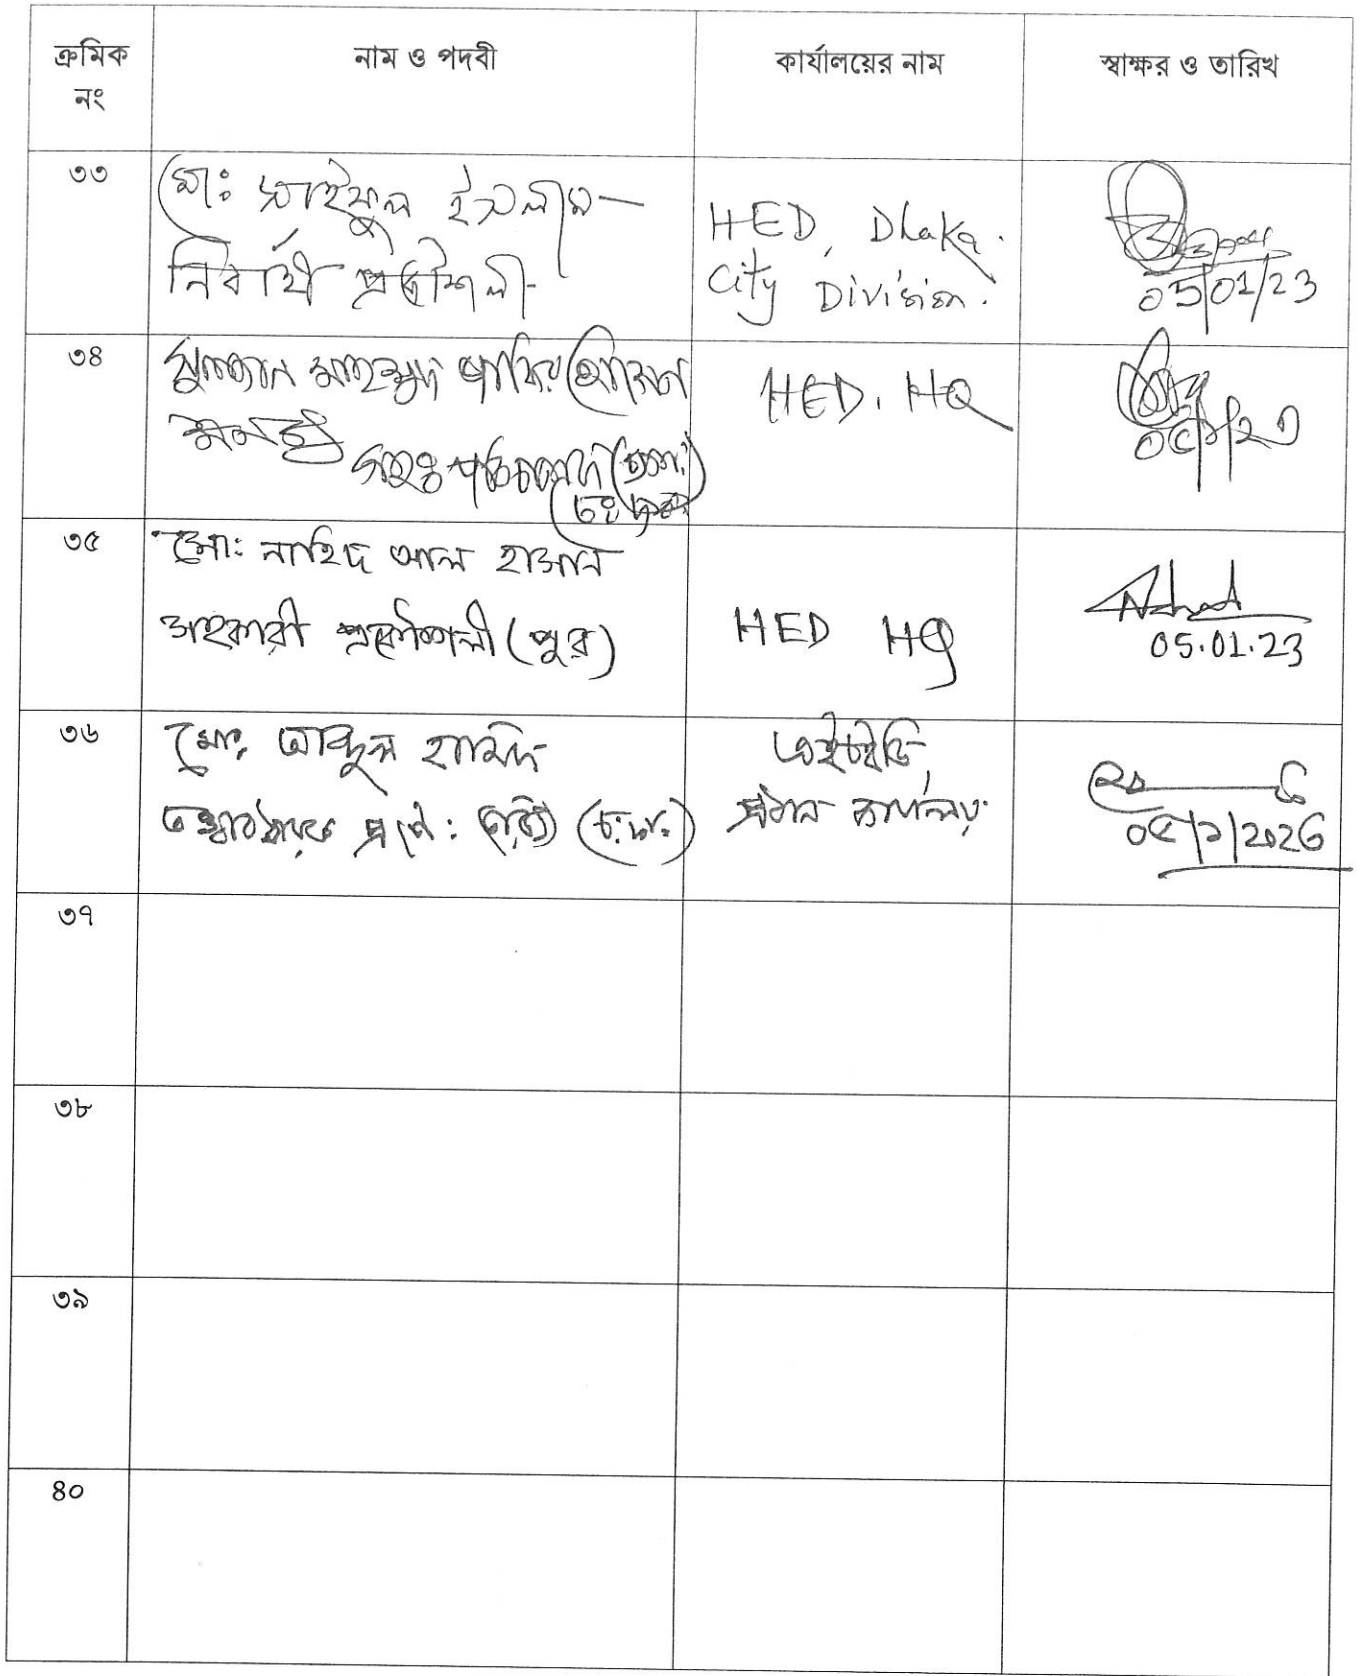 ক্রমিক নং
নাম ও পদবী
কার্যালয়ের নাম
স্বাক্ষর ও তারিখ
৩৩
মোঃ সাইফুল ইসলাম
নির্বাহী প্রকৌশলী
HED, Dhaka
City Division.
05/01/23
৩৪
সুলতান মাহমুদ
HED. HQ
৩৫
মোঃ নাহিদ আল হাসান
সহকারী প্রকৌশলী (পুর)
HED HQ
05.01.23
৩৬
মোঃ আব্দুল হামিদ
তত্ত্বাবধায়ক
(চঃদাঃ)
এইচইডি,
প্রধান কার্যালয়
৩৭
৩৮
৩৯
৪০